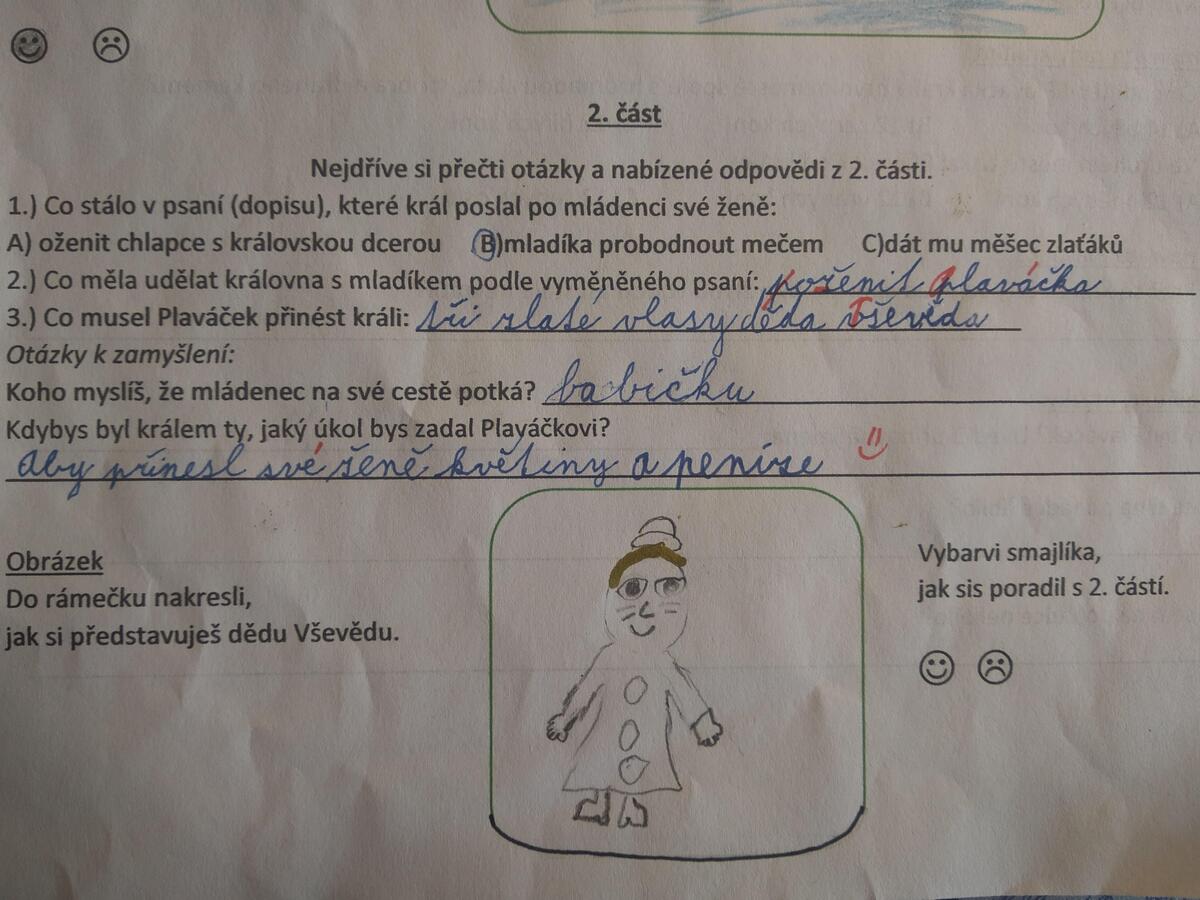 2. část
Nejdříve si přečti otázky a nabízené odpovědi z 2. části.
1.) Co stálo v psaní (dopisu), které král poslal po mládenci své ženě:
A) oženit chlapce s královskou dcerou B)mladíka probodnout mečem C)dát mu měšec zlaťáků
2.) Co měla udělat královna s mladíkem podle vyměněného psaní: poženit Plaváčka
3.) Co musel Plaváček přinést králi: tři zlaté vlasy děda Vševěda
Otázky k zamyšlení:
Koho myslíš, že mládenec na své cestě potká? babičku
Kdybys byl králem ty, jaký úkol bys zadal Plaváčkovi?
Aby přinesl své ženě květiny a peníze
Obrázek
Do rámečku nakresli,
jak si představuješ dědu Vševědu.
Vybarvi smajlíka,
jak sis poradil s 2. částí.